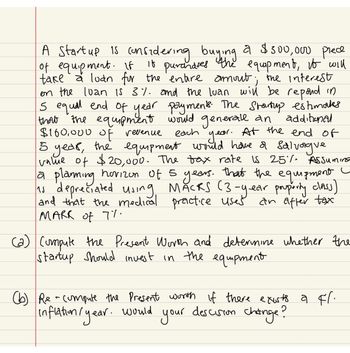 A Startup is considering buying a $300,000 piece
of equipment. If it purchases the equipment, it will
take a loan for the entire amount; the interest
on the loan is 3%. and the loan will be repaid in
5 equal end of year payments. The startup estimates
that the equipment would generate an additional
$160,000 of revenue each year. At the end of
5 years, the equipment would have a salvage
value of $20,000. The tax rate is 25%. Assuming
a planning horizon of 5 years. that the equipment
is depreciated using MACRS (3-year property class)
and that the medical practice uses an after tax
MARR of 7%.
(a) Compute the Present Worth and determine whether the
startup should invest in the equipment
(b) Re-compute the Present worth if there exists a 4%.
inflation/year. would your descision change?